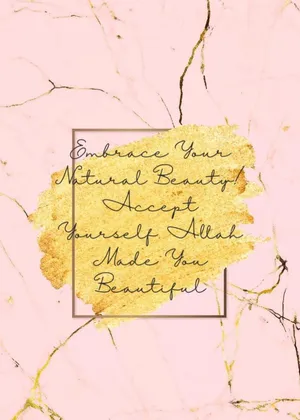 Embrace Your
Natural Beauty!
Accept
Yourself Allah
Made You
Beautiful